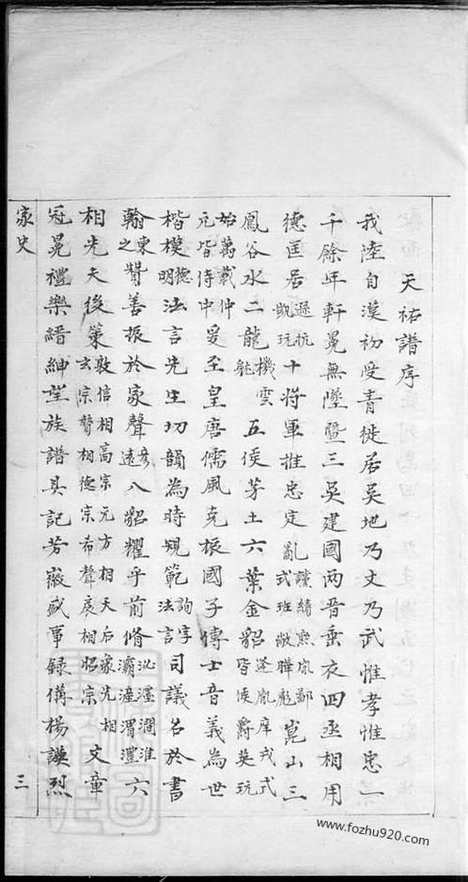 天祐譜序
我陸自漢初受青徙居吳地乃文乃武惟孝惟忠一
千餘年軒冕無墜暨三吳建國兩晉垂衣四丞相用
德匡居遜抗凱玩十將軍推忠定亂謹績煦胤鄙式班敞曄彪崑山三
鳳谷水二龍機雲五侯茅土六葉金貂逢胤庠式皆侯爵英玩
始萬載仲元皆侍中爰至皇唐儒風克振國子博士音義為世
楷模德明法言先生切韻為時規範詢字法言司議名於書
翰東之贊善振於家聲彥遠八貂耀乎前脩沁澧澗淮灞滻渭灃六
相光天後策敦信相高宗元方相天后象先相玄宗贄相德宗希聲扆相昭宗文章
冠冕禮樂縉紳望族譜具記芳徽盛事錄備揚謨烈
家史
三
www.fozhu920.com